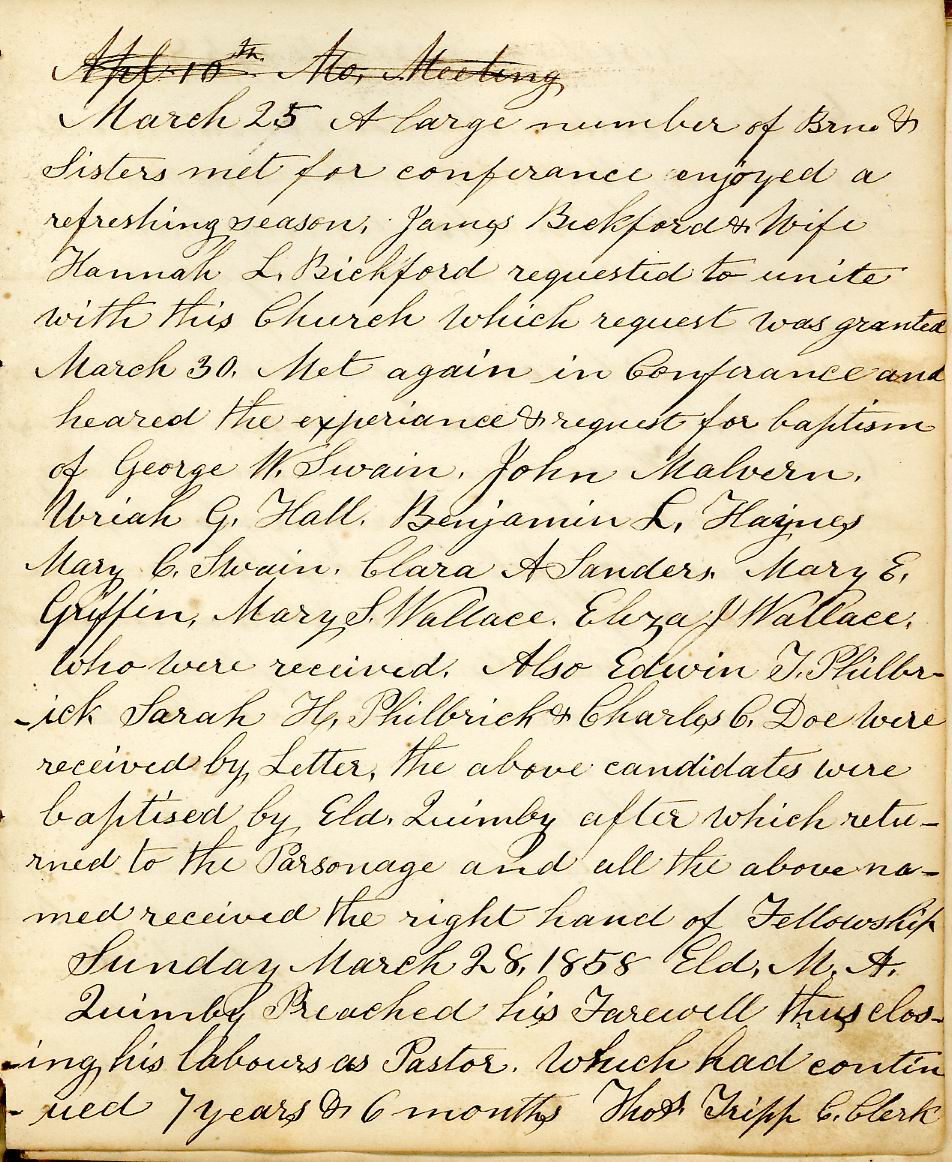 Apl. 10th. Mo, Meeting
March 25 A large number of Brn. &
Sisters met for conferance enjoyed a
refreshing season. James Bickford & Wife
Hannah L. Bickford requested to unite
with this Church which request was granted
March 30. Met again in Conferance and
heared the experiance & request for baptism
of George W. Swain. John Malvern.
Uriah G. Hall. Benjamin L. Haynes
Mary C. Swain. Clara A Sanders. Mary E.
Griffin, Mary S. Wallace. Eliza J Wallace.
who were received. Also Edwin T. Philbr-
-ick Sarah H, Philbrick & Charles C. Doe were
received by Letter, the above candidates were
baptised by Eld. Quimby after which retu-
rned to the Parsonage and all the above na-
med received the right hand of Fellowship
Sunday March 28, 1858 Eld. M. A.
Quimby Preached his Farewell thus clos-
-ing his labours as Pastor. Which had contin
-ued 7 years & 6 months Thos. Tripp C. Clerk